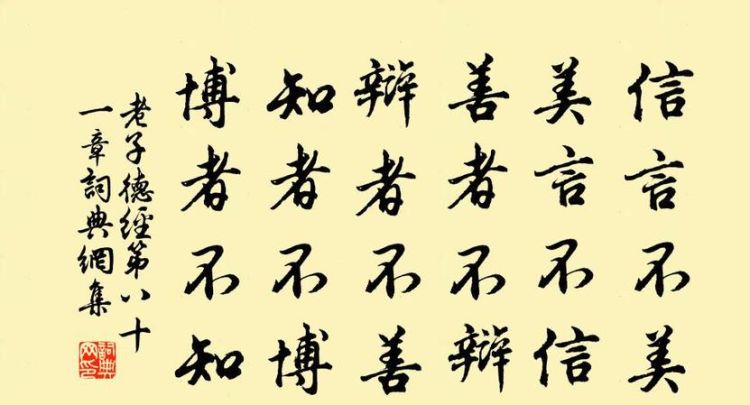 信言不美
美言不信
善者不辯
辯者不善
知者不博
博者不知
老子德經第八十
一章詞典網集
詞典
网印